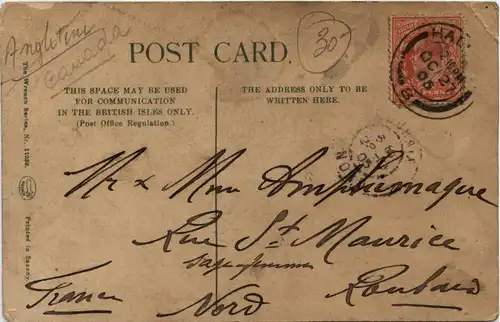 Angleterre
Canada
30-
POST CARD.
THIS SPACE MAY BE USED
FOR COMMUNICATION
IN THE BRITISH ISLES ONLY.
(Post Office Regulation.)
THE ADDRESS ONLY TO BE
WRITTEN HERE.
The Wrench Series, Nr. 11509
Printed in Saxony
PENNY
OC 27
Mr & Mme
Rue St Maurice
Roubaix
France
Nord